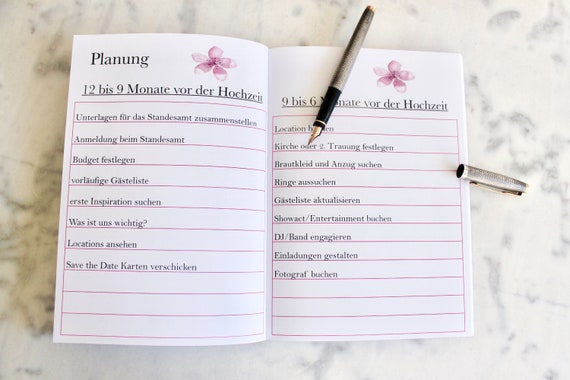 Planung
12 bis 9 Monate vor der Hochzeit
Unterlagen für das Standesamt zusammenstellen
Anmeldung beim Standesamt
Budget festlegen
vorläufige Gästeliste
erste Inspiration suchen
Was ist uns wichtig?
Locations ansehen
Save the Date Karten verschicken
9 bis 6 Monate vor der Hochzeit
Location
Kirche oder 2. Trauung festlegen
Brautkleid und Anzug suchen
Ringe aussuchen
Gästeliste aktualisieren
Showact/Entertainment buchen
DJ/Band engagieren
Einladungen gestalten
Fotograf buchen